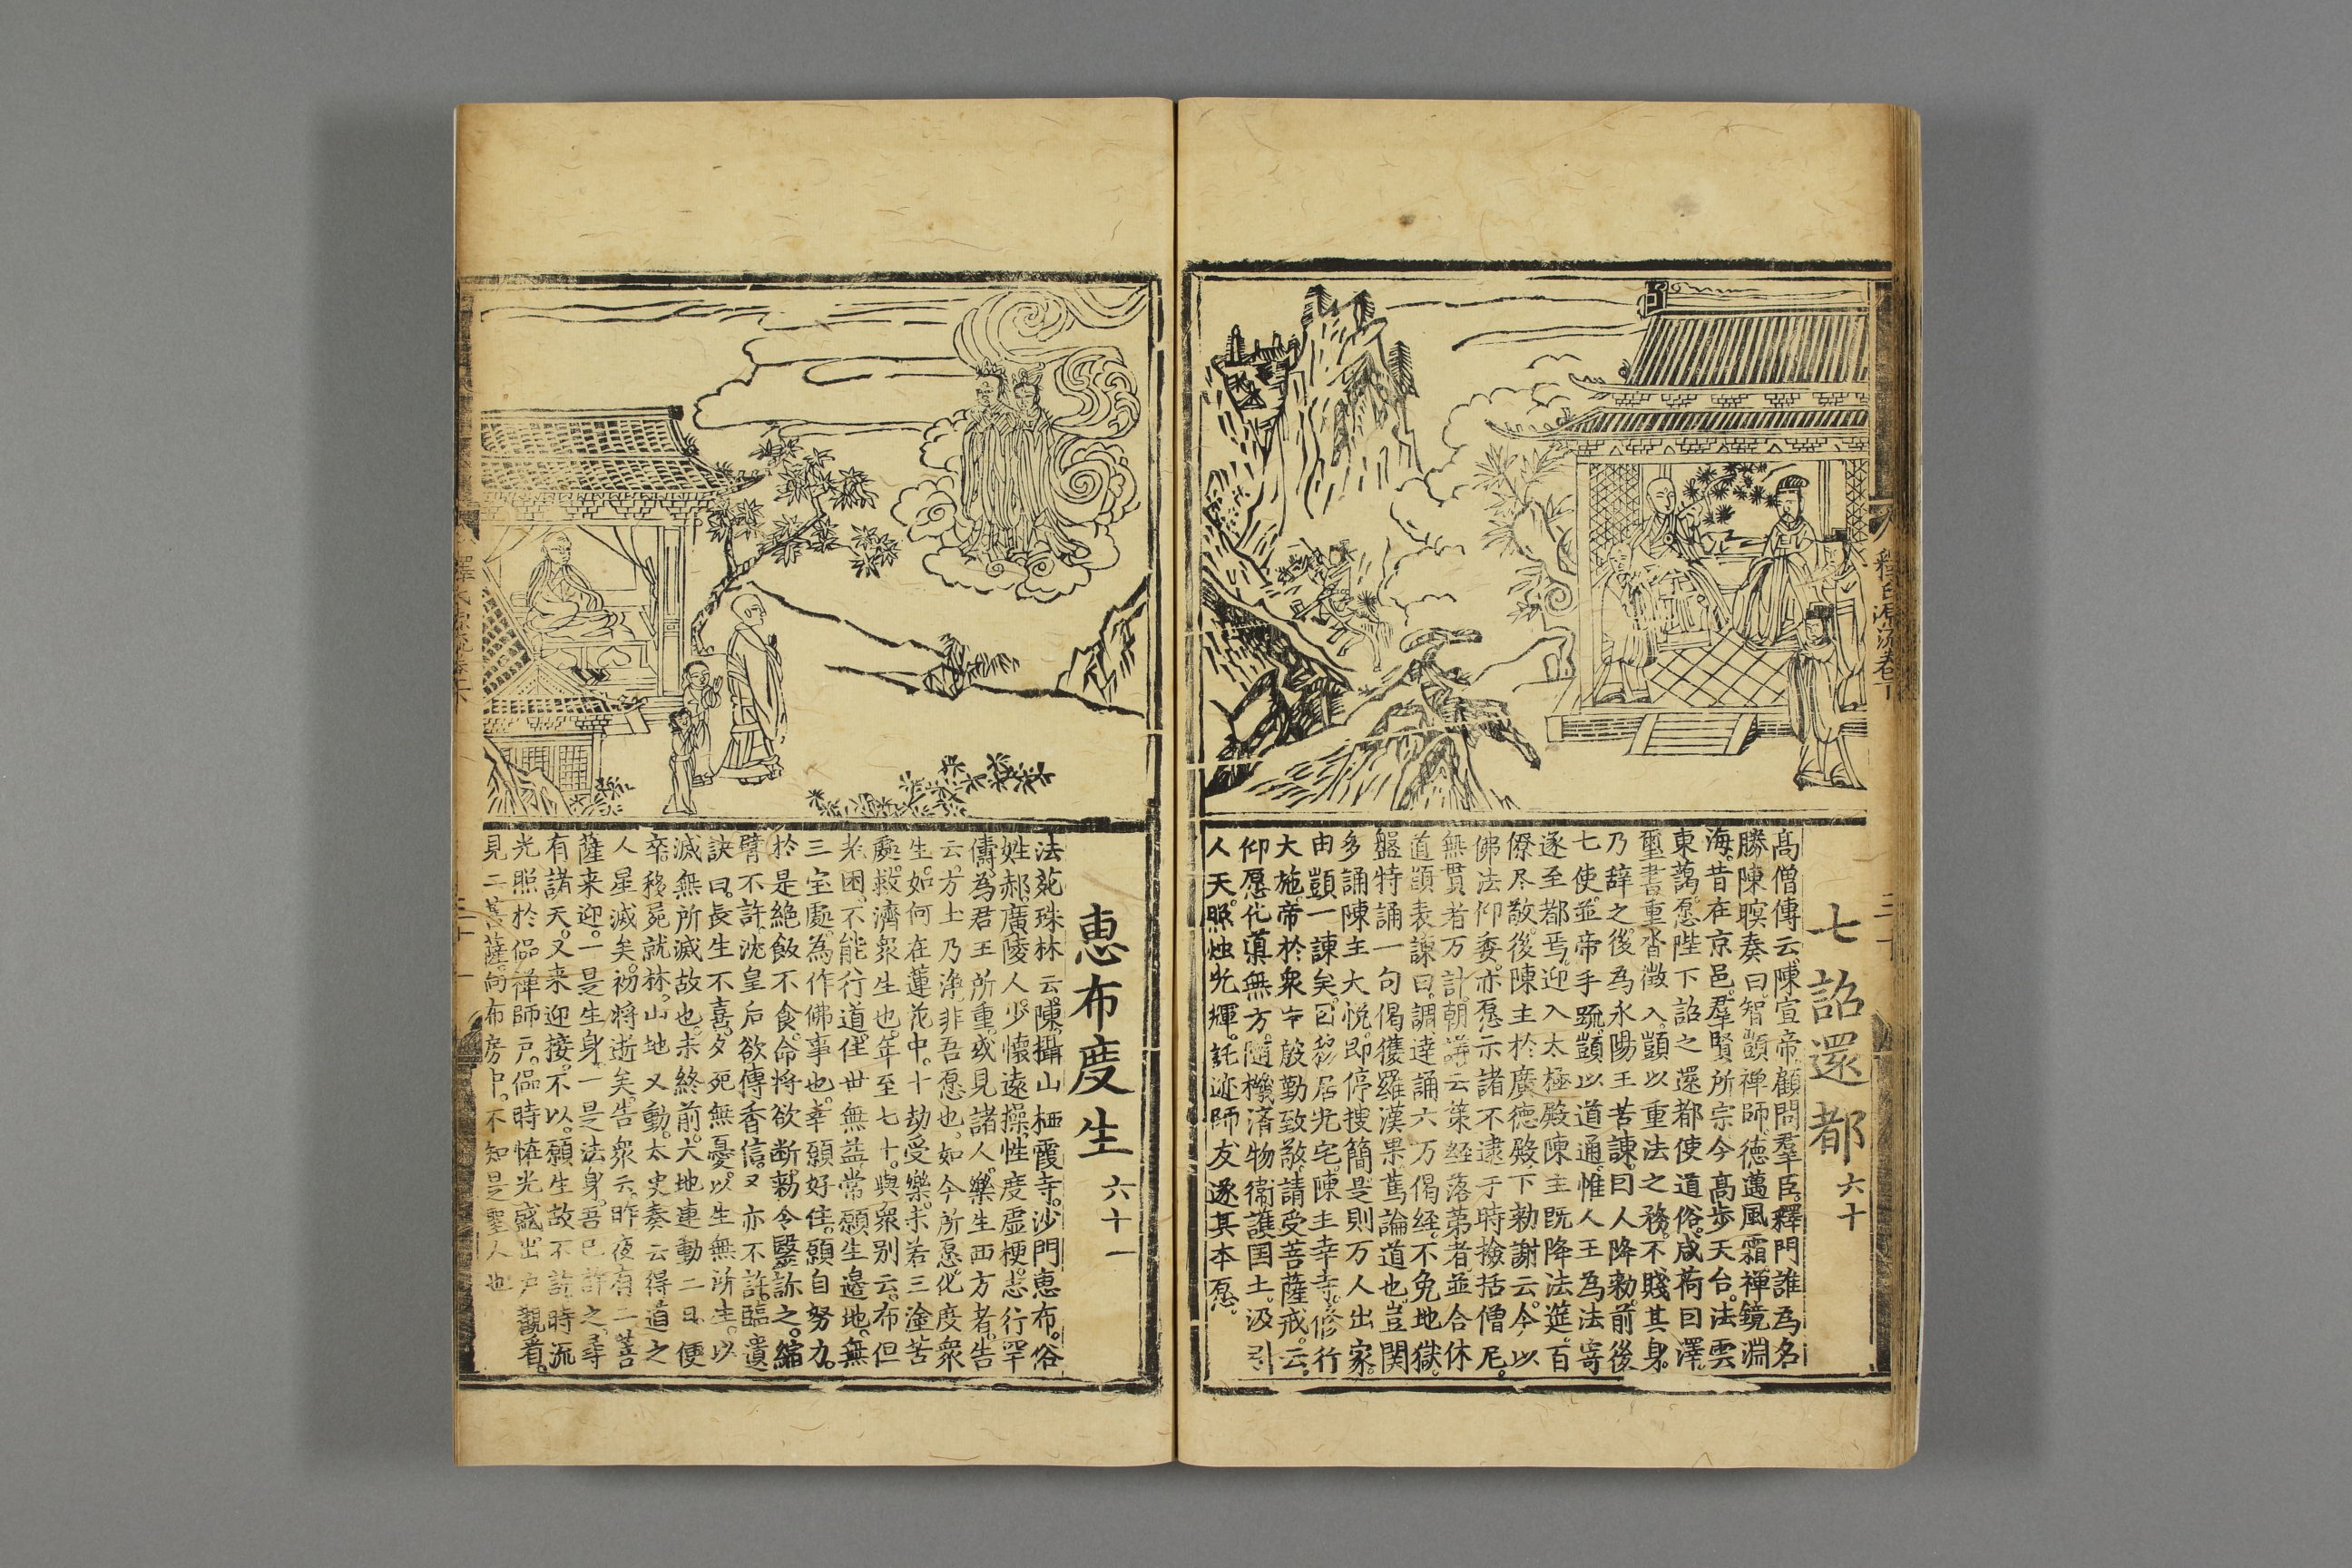 七詔還都 六十
高僧傳云陳宣帝顧問羣臣釋門誰為名
勝陳暝奏曰智顗禪師德邁風霜禪鏡淵
海昔在京邑羣賢所宗今高步天台法雲
東藹愿陛下詔之還都使道俗咸荷曰澤
璽書重沓徵入顗以重法之務不賤其身
乃辞之後為永陽王苦諫曰人降勑前後
七使並帝手䟽顗以道通惟人王為法寄
遂至都焉迎入太極殿陳主既降法筵百
僚尽敬後陳主於廣德殿下勑謝云今以
佛法仰委亦愿示諸不逮于時撿括僧尼
無貫者万計朝議云策経落第者並合休
道顗表諫曰調達誦六万偈経不免地獄
盤特誦一句偈獲羅漢果篤論道也豈関
多誦陳主大悦即停搜簡是則万人出家
由顗一諫矣曰移居光宅陳主幸寺修行
大施帝於衆中殷勤致敬請受菩薩戒云
仰愿化導無方随機済物衛護国土汲引
人天照烛光輝託迹師友遂其本愿
釋氏源流卷下
恵布度生 六十一
法苑珠林云陳攝山栖霞寺沙門恵布俗
姓郝廣陵人少懷遠操性度虚梗志行罕
儔為君王所重或見諸人樂生西方者告
云方土乃淨非吾愿也如今所愿化度衆
生如何在蓮花中十劫受樂未若三塗苦
處救濟衆生也年至七十與衆别云布但
老困不能行道住世無益常願生邉地無
三宝處為作佛事也幸願好住願自努力
於是絶飯不食命将欲断勑令醫診之縮
臂不許沈皇后欲傳香信又亦不許臨遺
訣曰長生不喜夕死無憂以生無所生以
滅無所滅故也未終前大地連動二日便
卒移屍就林山地又動太史奏云得道之
人星滅矣初将逝矣告衆云昨夜有二菩
薩来迎一是生身一是法身吾已許之尋
有諸天又来迎接不以願生故不許時流
光照於侶禪師户侶時恠光盛出户觀看
見二菩薩向布房中不知是聖人也